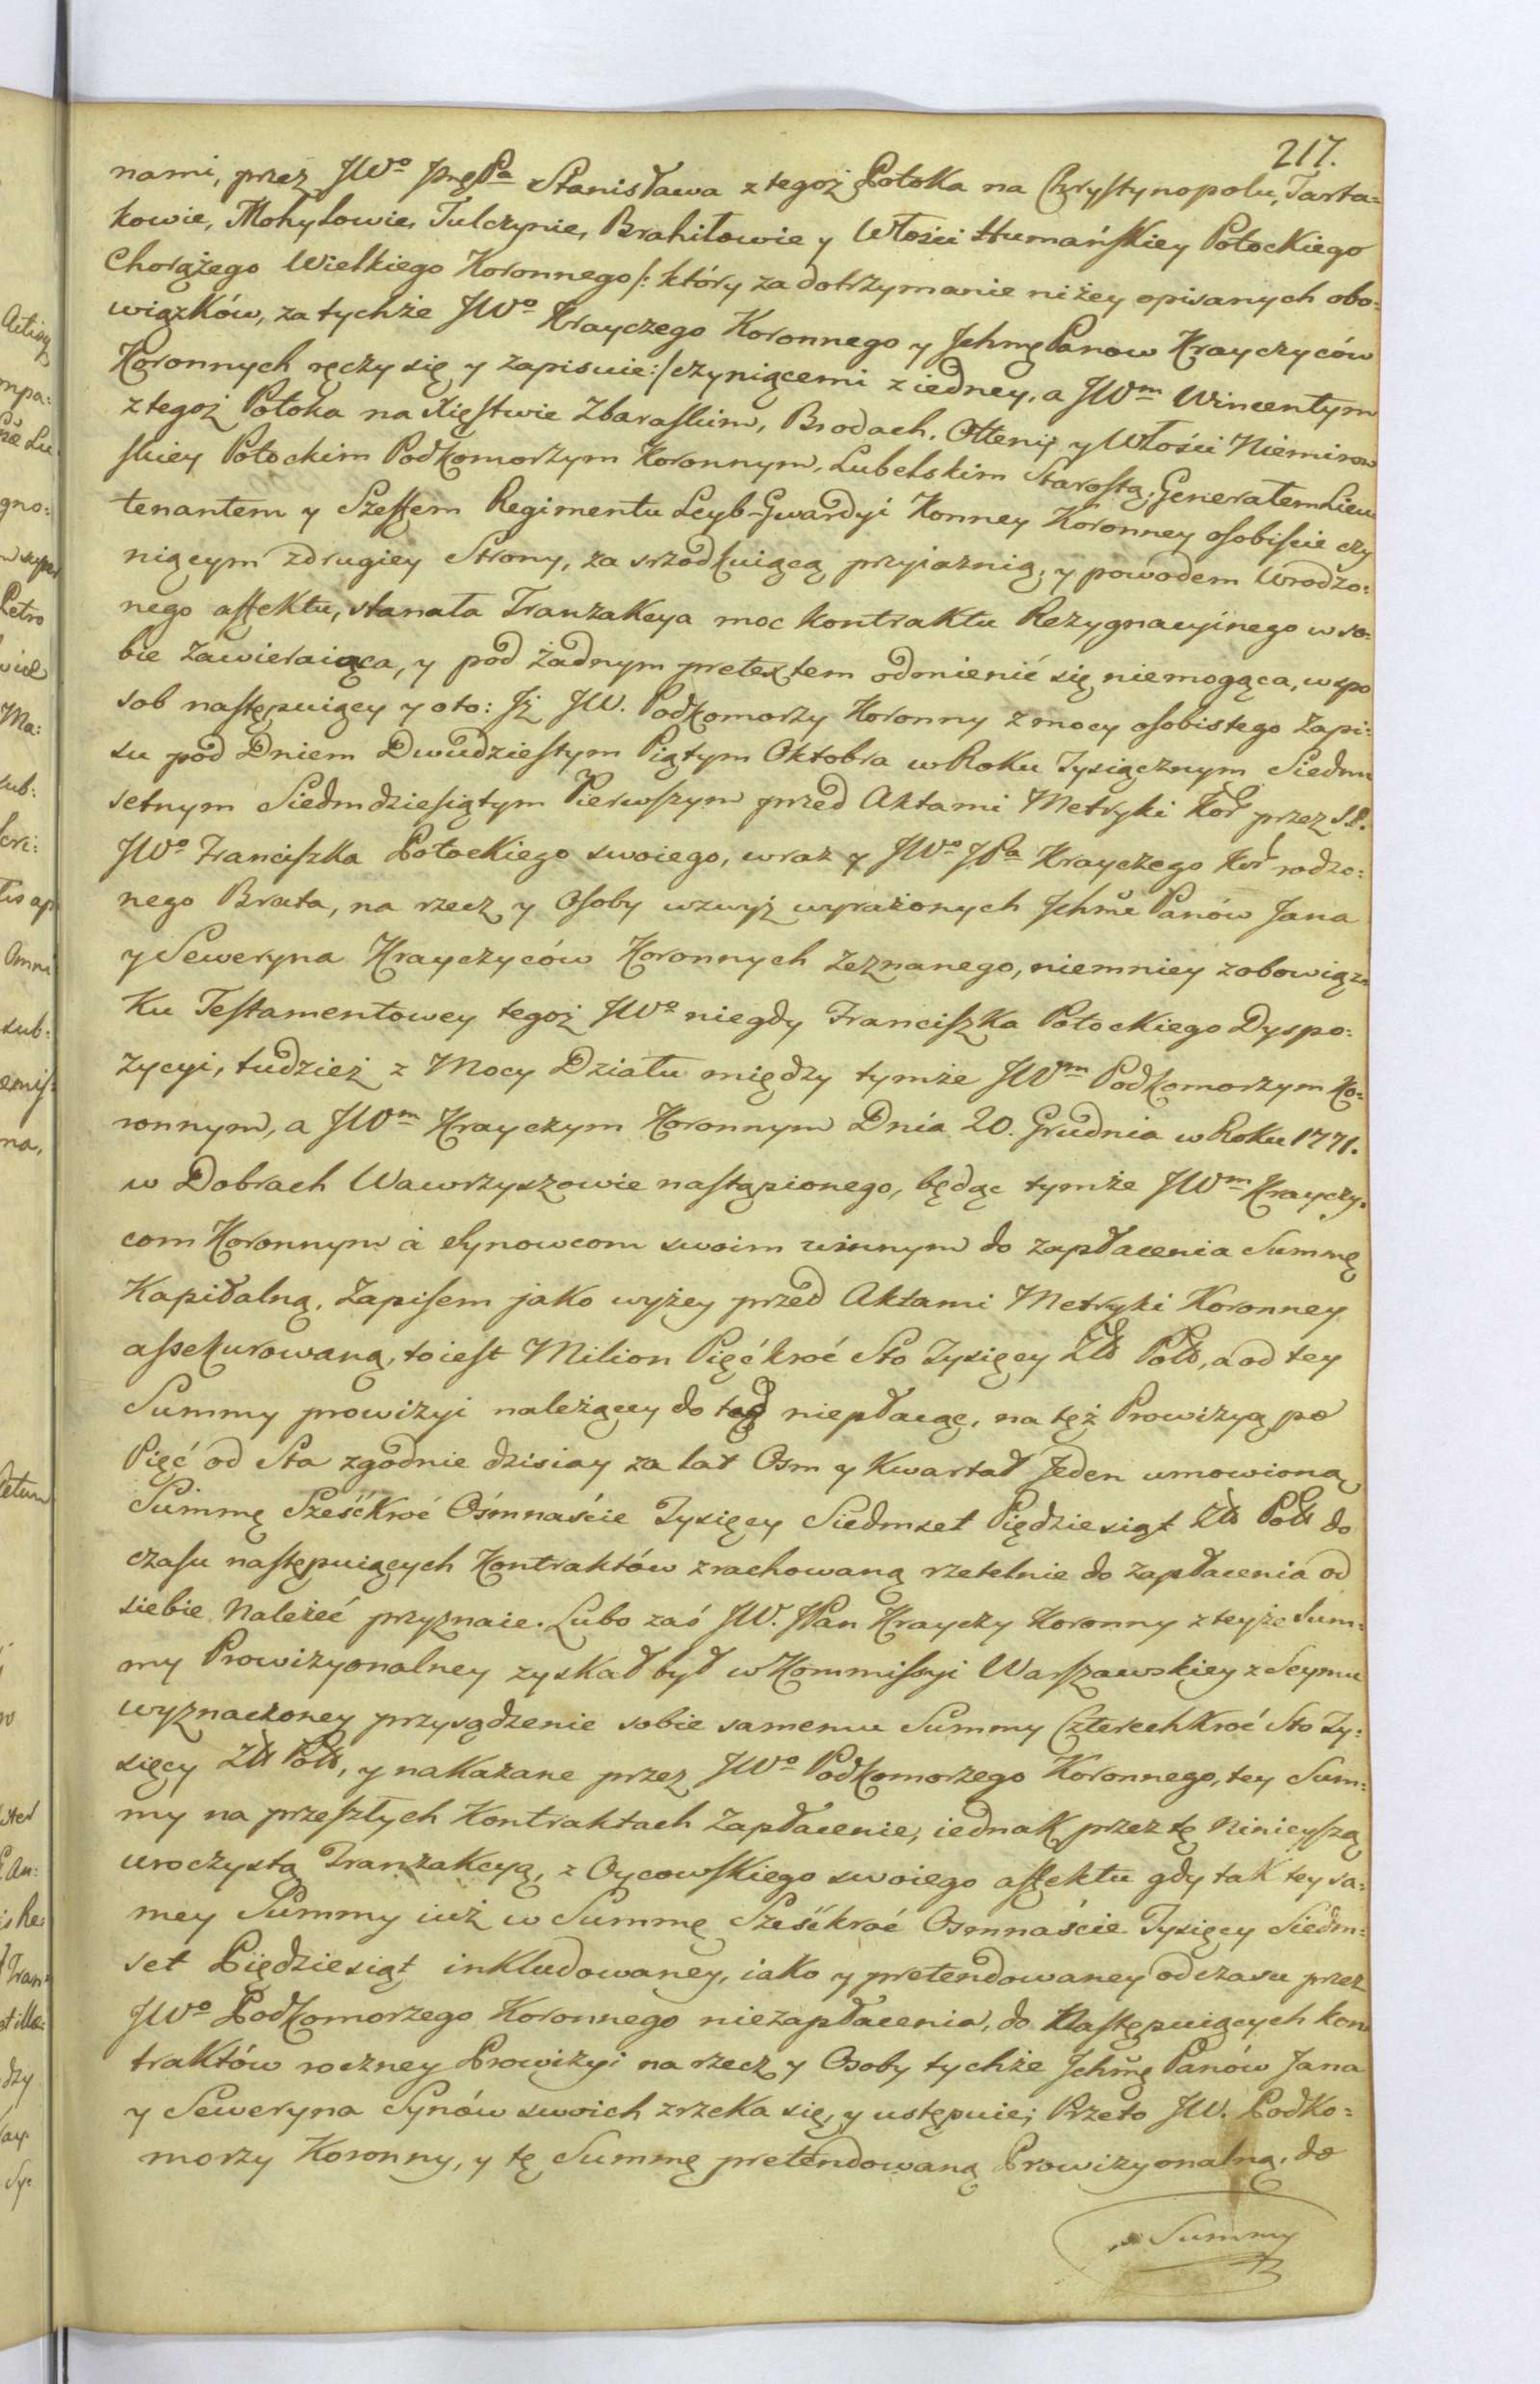 217.
nami, przez JWo Jmę Pa Stanisława z tegoż Potoka na Chrystynopolu, Tarta=
kowie, Mohylowie, Tulczynie, Brahiłowie y Włości Humańskiey Potockiego
Chorążego Wielkiego Koronnego /: który za dotrzymanie niżey opisanych obo=
wiązków, za tychże JWo Krayczego Koronnego y Jchmę Panow Krayczyców
Koronnych ręczy się y zapisuie :/ czyniącemi z iedney, a JWm Wincentym
z tegoż Potoka na Xięstwie Zbaraskim, Brodach, Ottenii y Włości Niemirow
skiey Potockim Podkomorzym Koronnym, Lubelskim Starostą, Generałem Lieu
tenantem y Szeffem Regimentu Leyb-Gwardyi Konney Koronney osobiście czy
niącym z drugiey Strony, za srzodkuiącą przyiaznią, y powodem Wrodzo=
nego affektu, stanała Tranzakcya moc kontraktu Rezygnacyinego w so=
bie zawieraiąca, y pod żadnym pretextem odmienić się niemogąca, w spo
sob następuiący y oto: Jż JW. Podkomorzy Koronny z mocy osobistego Zapi=
su pod Dniem Dwudziestym Piątym Oktobra w Roku Tysiącznym Siedm
setnym Siedmdziesiątym Pierwszym przed Aktami Metryki Kor przez S.P.
JWo Franciszka Potockiego swoiego, wraz y JWo JPa Krayczego Kor rodzo=
nego Brata, na rzecz y Osoby wzwyż wyrażonych Jchmę Panów Jana
y Seweryna Krayczyców Koronnych zeznanego, niemniey z obowiąz
Ku Testamentowey tegoż JWo niegdy Franciszka Potockiego Dyspo=
zycyi, tudzież z Mocy Działu między tymże JWm Podkomorzym Ko=
ronnym, a JWm Krayczym Koronnym Dnia 20. Grudnia w Roku 1771.
w Dobrach Wawrzyszowie nastąpionego, będąc tymże JWm Krayczy=
com Koronnym à Synowcom swoim winnym do zapłacenia Summę
Kapitalną, Zapisem jako wyżey przed Aktami Metryki Koronney
assekurowaną, to iest Milion Pięćkroć Sto Tysięcy Zł Pol, a od tey
Summy prowizyi należącey do tąd niepłacąc, na tęż Prowizyą po
Pięć od Sta zgodnie dzisiay za lat Osm y Kwartał Jeden umowioną
Summę Sześćkroć Ośmnaście Tysięcy Siedmset Piędziesiąt Zł Pol do
czasu następuiących Kontraktów zrachowaną rzetelnie do zapłacenia od
siebie Należeć przyznaie. Lubo zaś JW. JPan Krayczy Koronny z teyże Sum=
my Prowizyonalney zyskał był w Kommissyi Warszawskiey z Seymu
wyznaczoney przysądzenie sobie samemu Summy Czterechkroć Sto Ty=
sięcy Zł Pol, y nakazane przez JWo Podkomorzego Koronnego, tey Sum=
my na przeszłych Kontraktach Zapłacenie, iednak przez tę Ninieyszą
uroczystą Tranzakcyą, z Oycowskiego swoiego affektu gdy tak tey sa=
mey Summy iuż w Summę Sześćkroć Osmnaście Tysięcy Siedm=
set PięDziesiąt inkludowaney, iako y pretendowaney od czasu przez
JWo Podkomorzego Koronnego niezapłacenia, do Następuiących kon
traktów roczney Prowizyi na rzecz y Osoby tychże Jchmę Panów Jana
y Seweryna Synów swoich zrzeka się, y ustępuie; Przeto JW. Podko=
morzy Koronny, y tę Summę pretendowaną Prowizyonalną, do
Summy